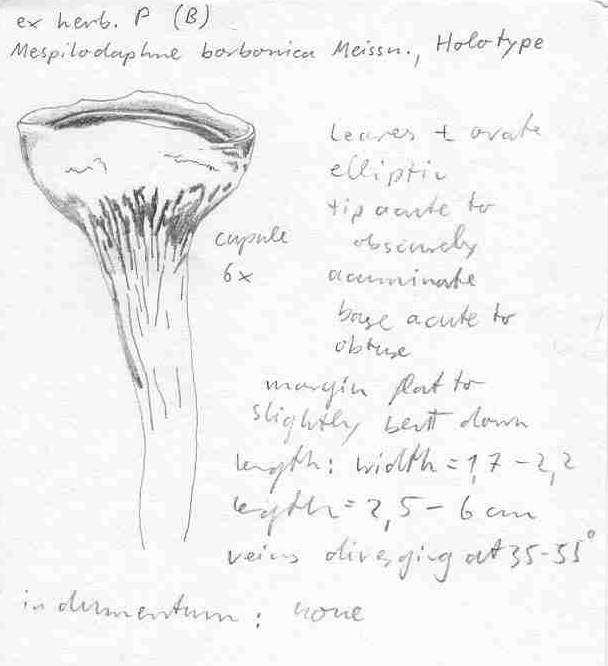 ex herb. P (B)
Mespilodaphne borbonica Meissn., Holotype
Leaves ± ovate
elliptic
tip acute to
obscurely
cupule
6x
acuminate
base acute to
obtuse
margin flat to
slightly bent down
length: width = 1,7 - 2,2
length = 2,5 - 6 cm
veins diverging at 35-55°
indumentum: none